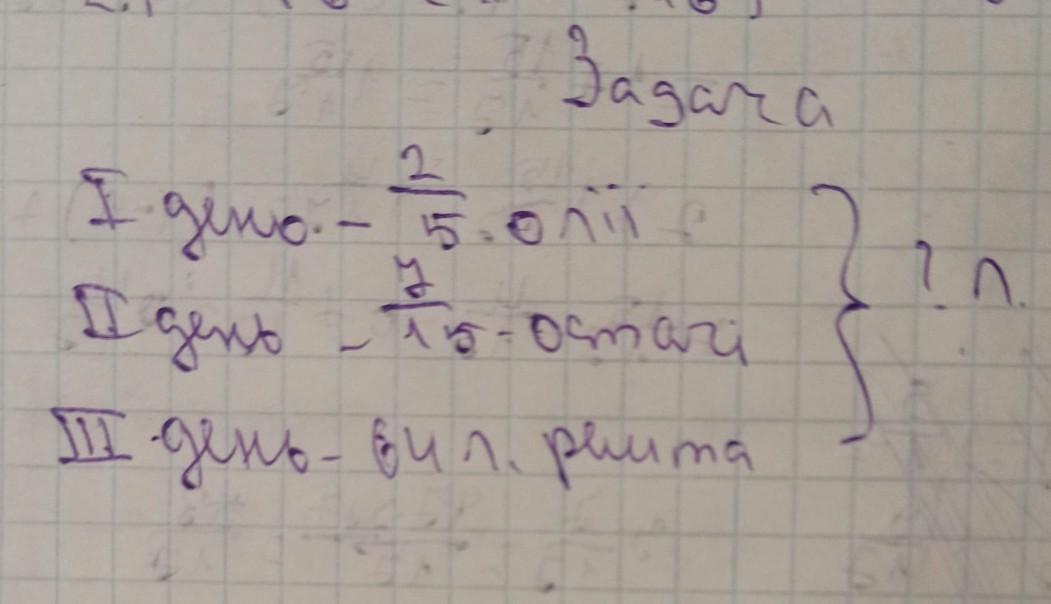 Задача
I день - 2/5 олії
II день - 7/15 - остачі
III день - 64 л. решта
} ? л.